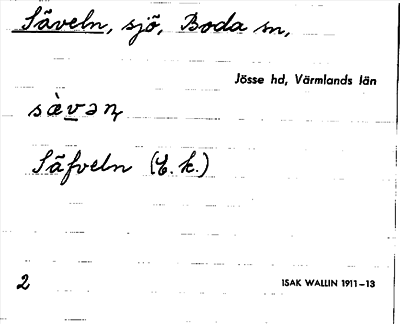 Säveln, sjö, Boda sn,
Jösse hd, Värmlands län
sæ̀vəɳ
Säfveln (E.k.)
2
ISAK WALLIN 1911–13